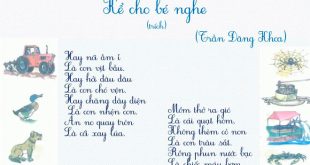 Kể cho bé nghe
(trích)
(Trần Đăng Khoa)
Hay nói ầm ĩ
Là con vịt bầu.
Hay hỏi đâu đâu
Là con chó vện.
Hay chăng dây điện
Là con nhện con.
Ăn no quay tròn
Là cối xay lúa.
Mồm thở ra gió
Là cái quạt hòm.
Không thèm cỏ non
Là con trâu sắt.
Rồng phun nước bạc
Là chiếc máy bơm